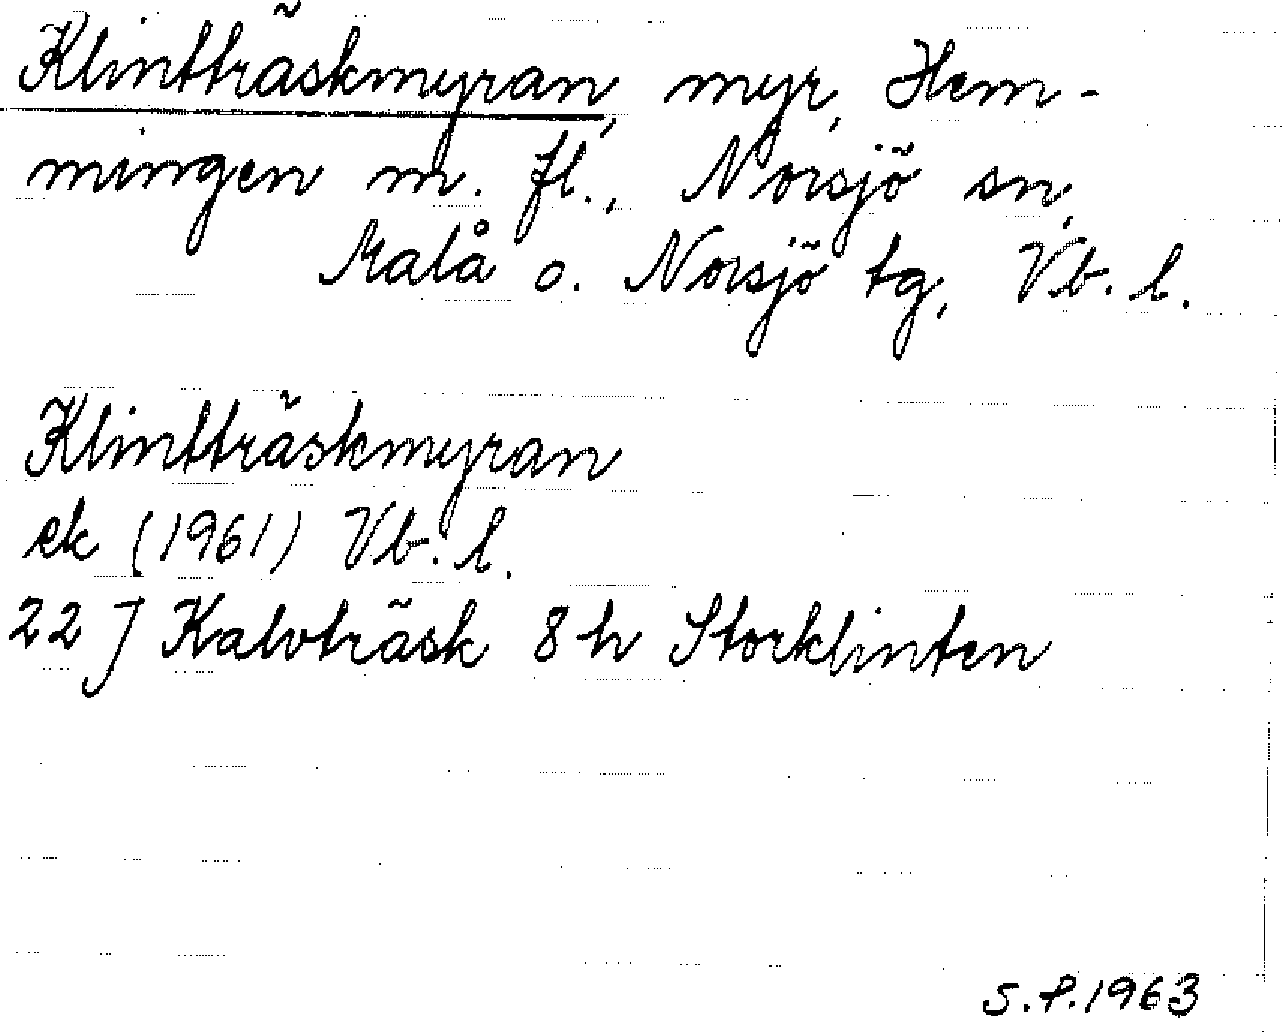 Klintträskmyran, myr, Hem-
mingen m. fl., Norsjö sn,
Malå o. Norsjö tg, Vb. l.
Klintträskmyran
ek (1961) Vb. l.
22 J Kalvträsk 8 h Storklinten
S.P.1963